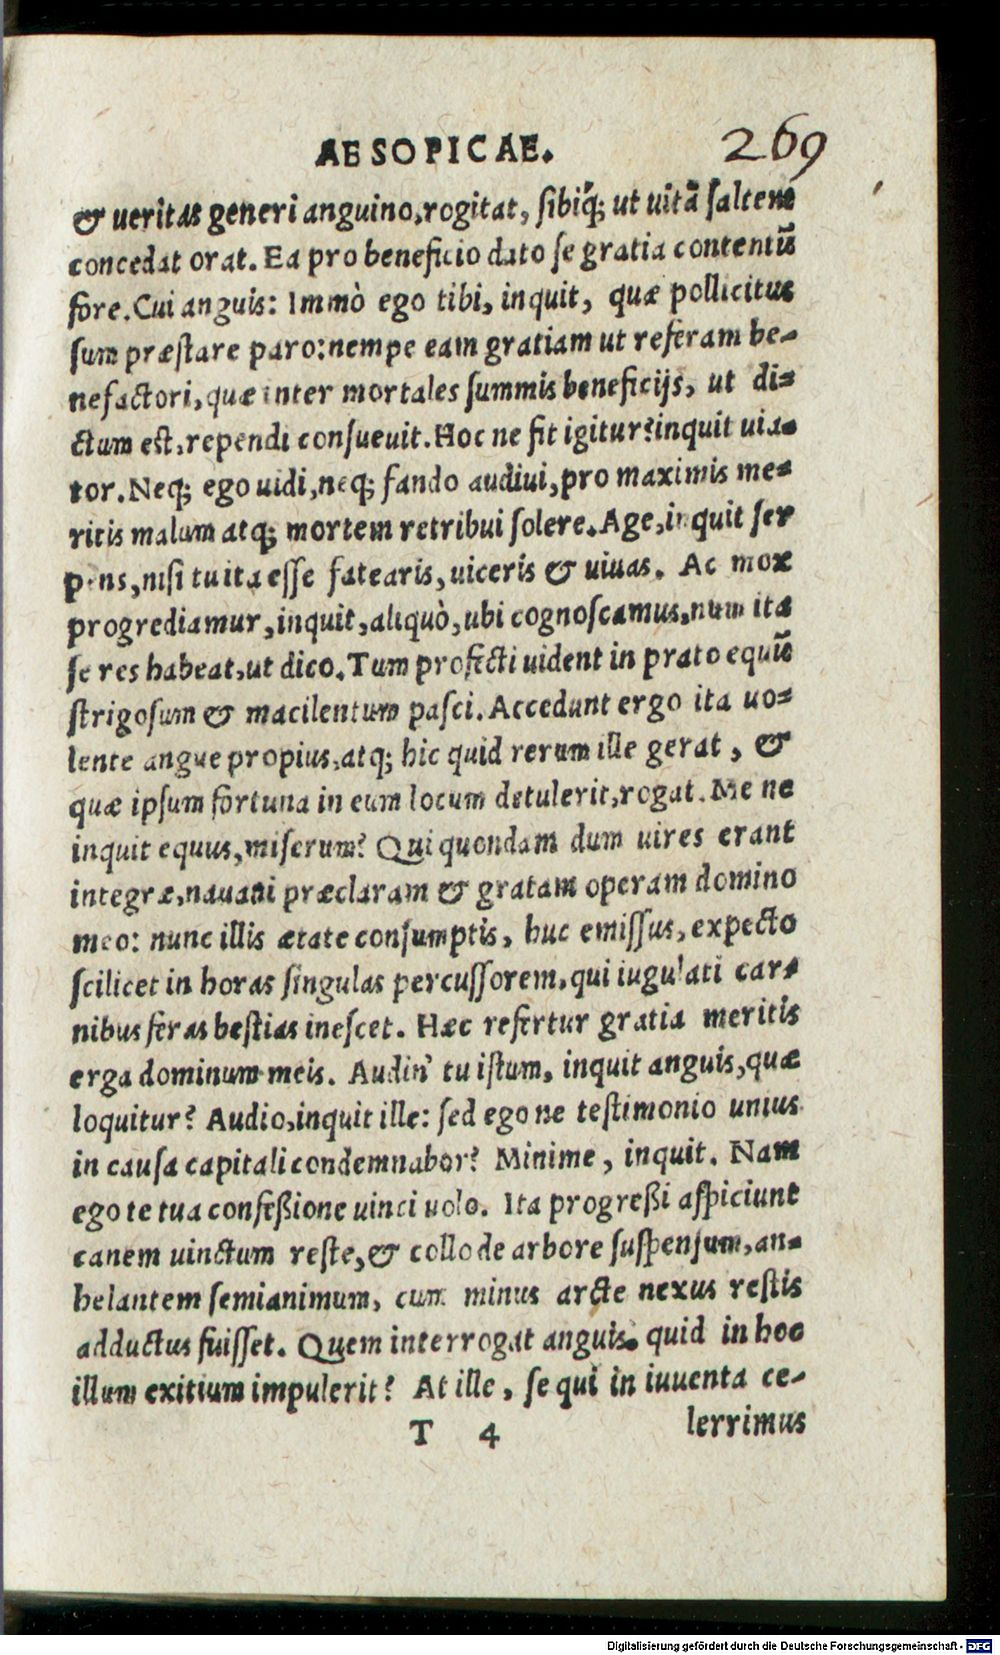 AESOPICAE.
269
& ueritas generi anguino, rogitat, sibiq́; ut uitā saltem
concedat orat. Ea pro beneficio dato se gratia contentū
fore. Cui anguis: Immò ego tibi, inquit, quæ pollicitus
sum præstare paro: nempe eam gratiam ut referam be-
nefactori, quæ inter mortales summis beneficijs, ut di-
ctum est, rependi consueuit. Hoc ne fit igitur? inquit uia-
tor. Neq; ego uidi, neq; fando audiui, pro maximis me-
ritis malum atq; mortem retribui solere. Age, inquit ser
pens, nisi tu ita esse fatearis, uiceris & uiuas. Ac mox
progrediamur, inquit, aliquò, ubi cognoscamus, num ita
se res habeat, ut dico. Tum profecti uident in prato equū
strigosum & macilentum pasci. Accedunt ergo ita uo-
lente angue propius, atq; hic quid rerum ille gerat, &
quæ ipsum fortuna in eum locum detulerit, rogat. Me ne
inquit equus, miserum? Qui quondam dum uires erant
integræ, nauaui præclaram & gratam operam domino
meo: nunc illis ætate consumptis, huc emissus, expecto
scilicet in horas singulas percussorem, qui iugulati car-
nibus feras bestias inescet. Hæc refertur gratia meritis
erga dominum meis. Audin' tu istum, inquit anguis, quæ
loquitur? Audio, inquit ille: sed ego ne testimonio unius
in causa capitali condemnabor? Minime, inquit. Nam
ego te tua confeßione uinci uolo. Ita progreßi aspiciunt
canem uinctum reste, & collo de arbore suspensum, an-
helantem semianimum, cum minus arcte nexus restis
adductus fuisset. Quem interrogat anguis. quid in hoc
illum exitium impulerit? At ille, se qui in iuuenta ce-
T 4 lerrimus
Digitalisierung gefördert durch die Deutsche Forschungsgemeinschaft - DFG